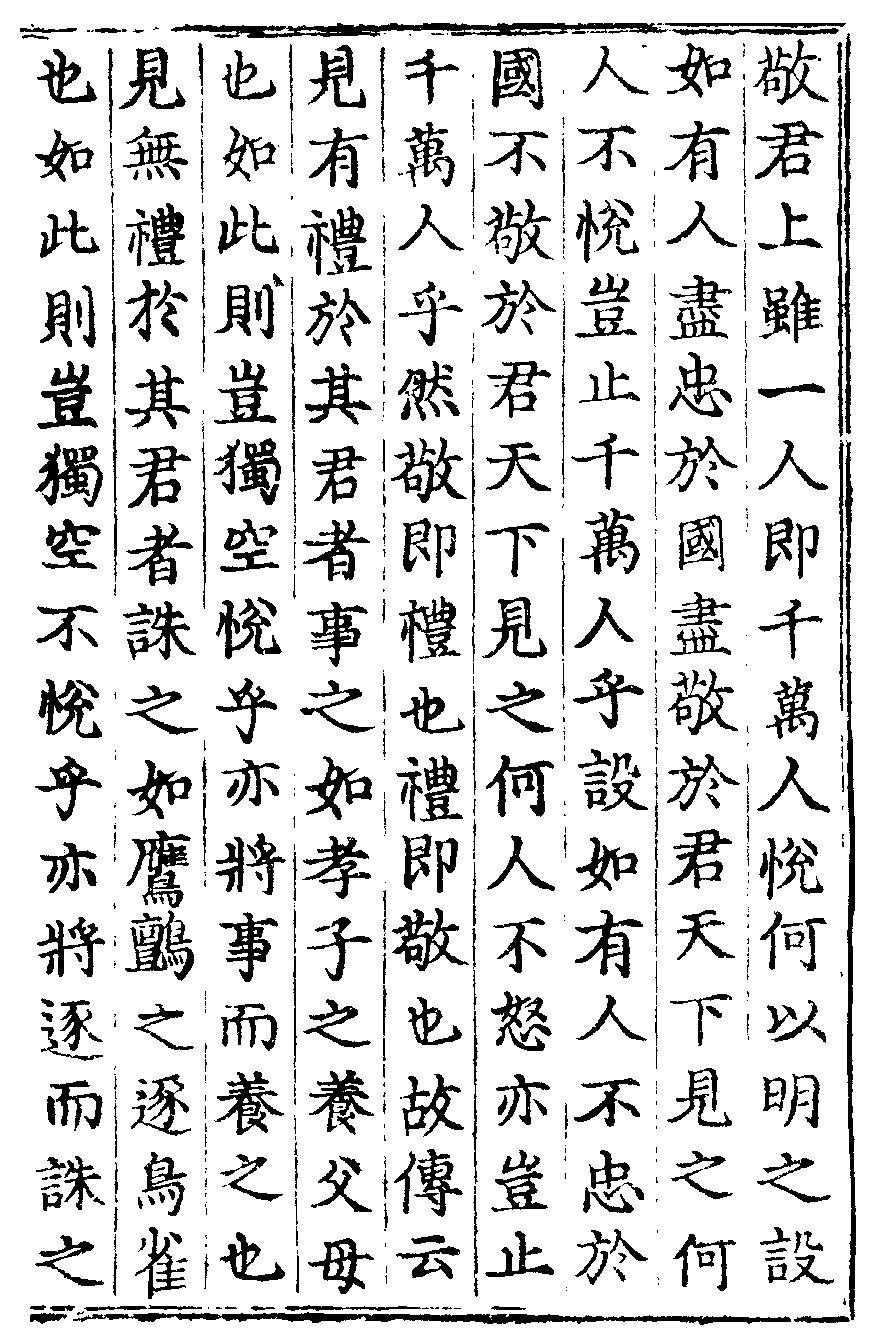 敬君上雖一人即千萬人悅何以明之設
如有人盡忠於國盡敬於君天下見之何
人不悅豈止千萬人乎設如有人不忠於
國不敬於君天下見之何人不怒亦豈止
千萬人乎然敬即禮也禮即敬也故傳云
見有禮於其君者事之如孝子之養父母
也如此則豈獨空悅乎亦將事而養之也
見無禮於其君者誅之如鷹鸇之逐鳥雀
也如此則豈獨空不悅乎亦將逐而誅之